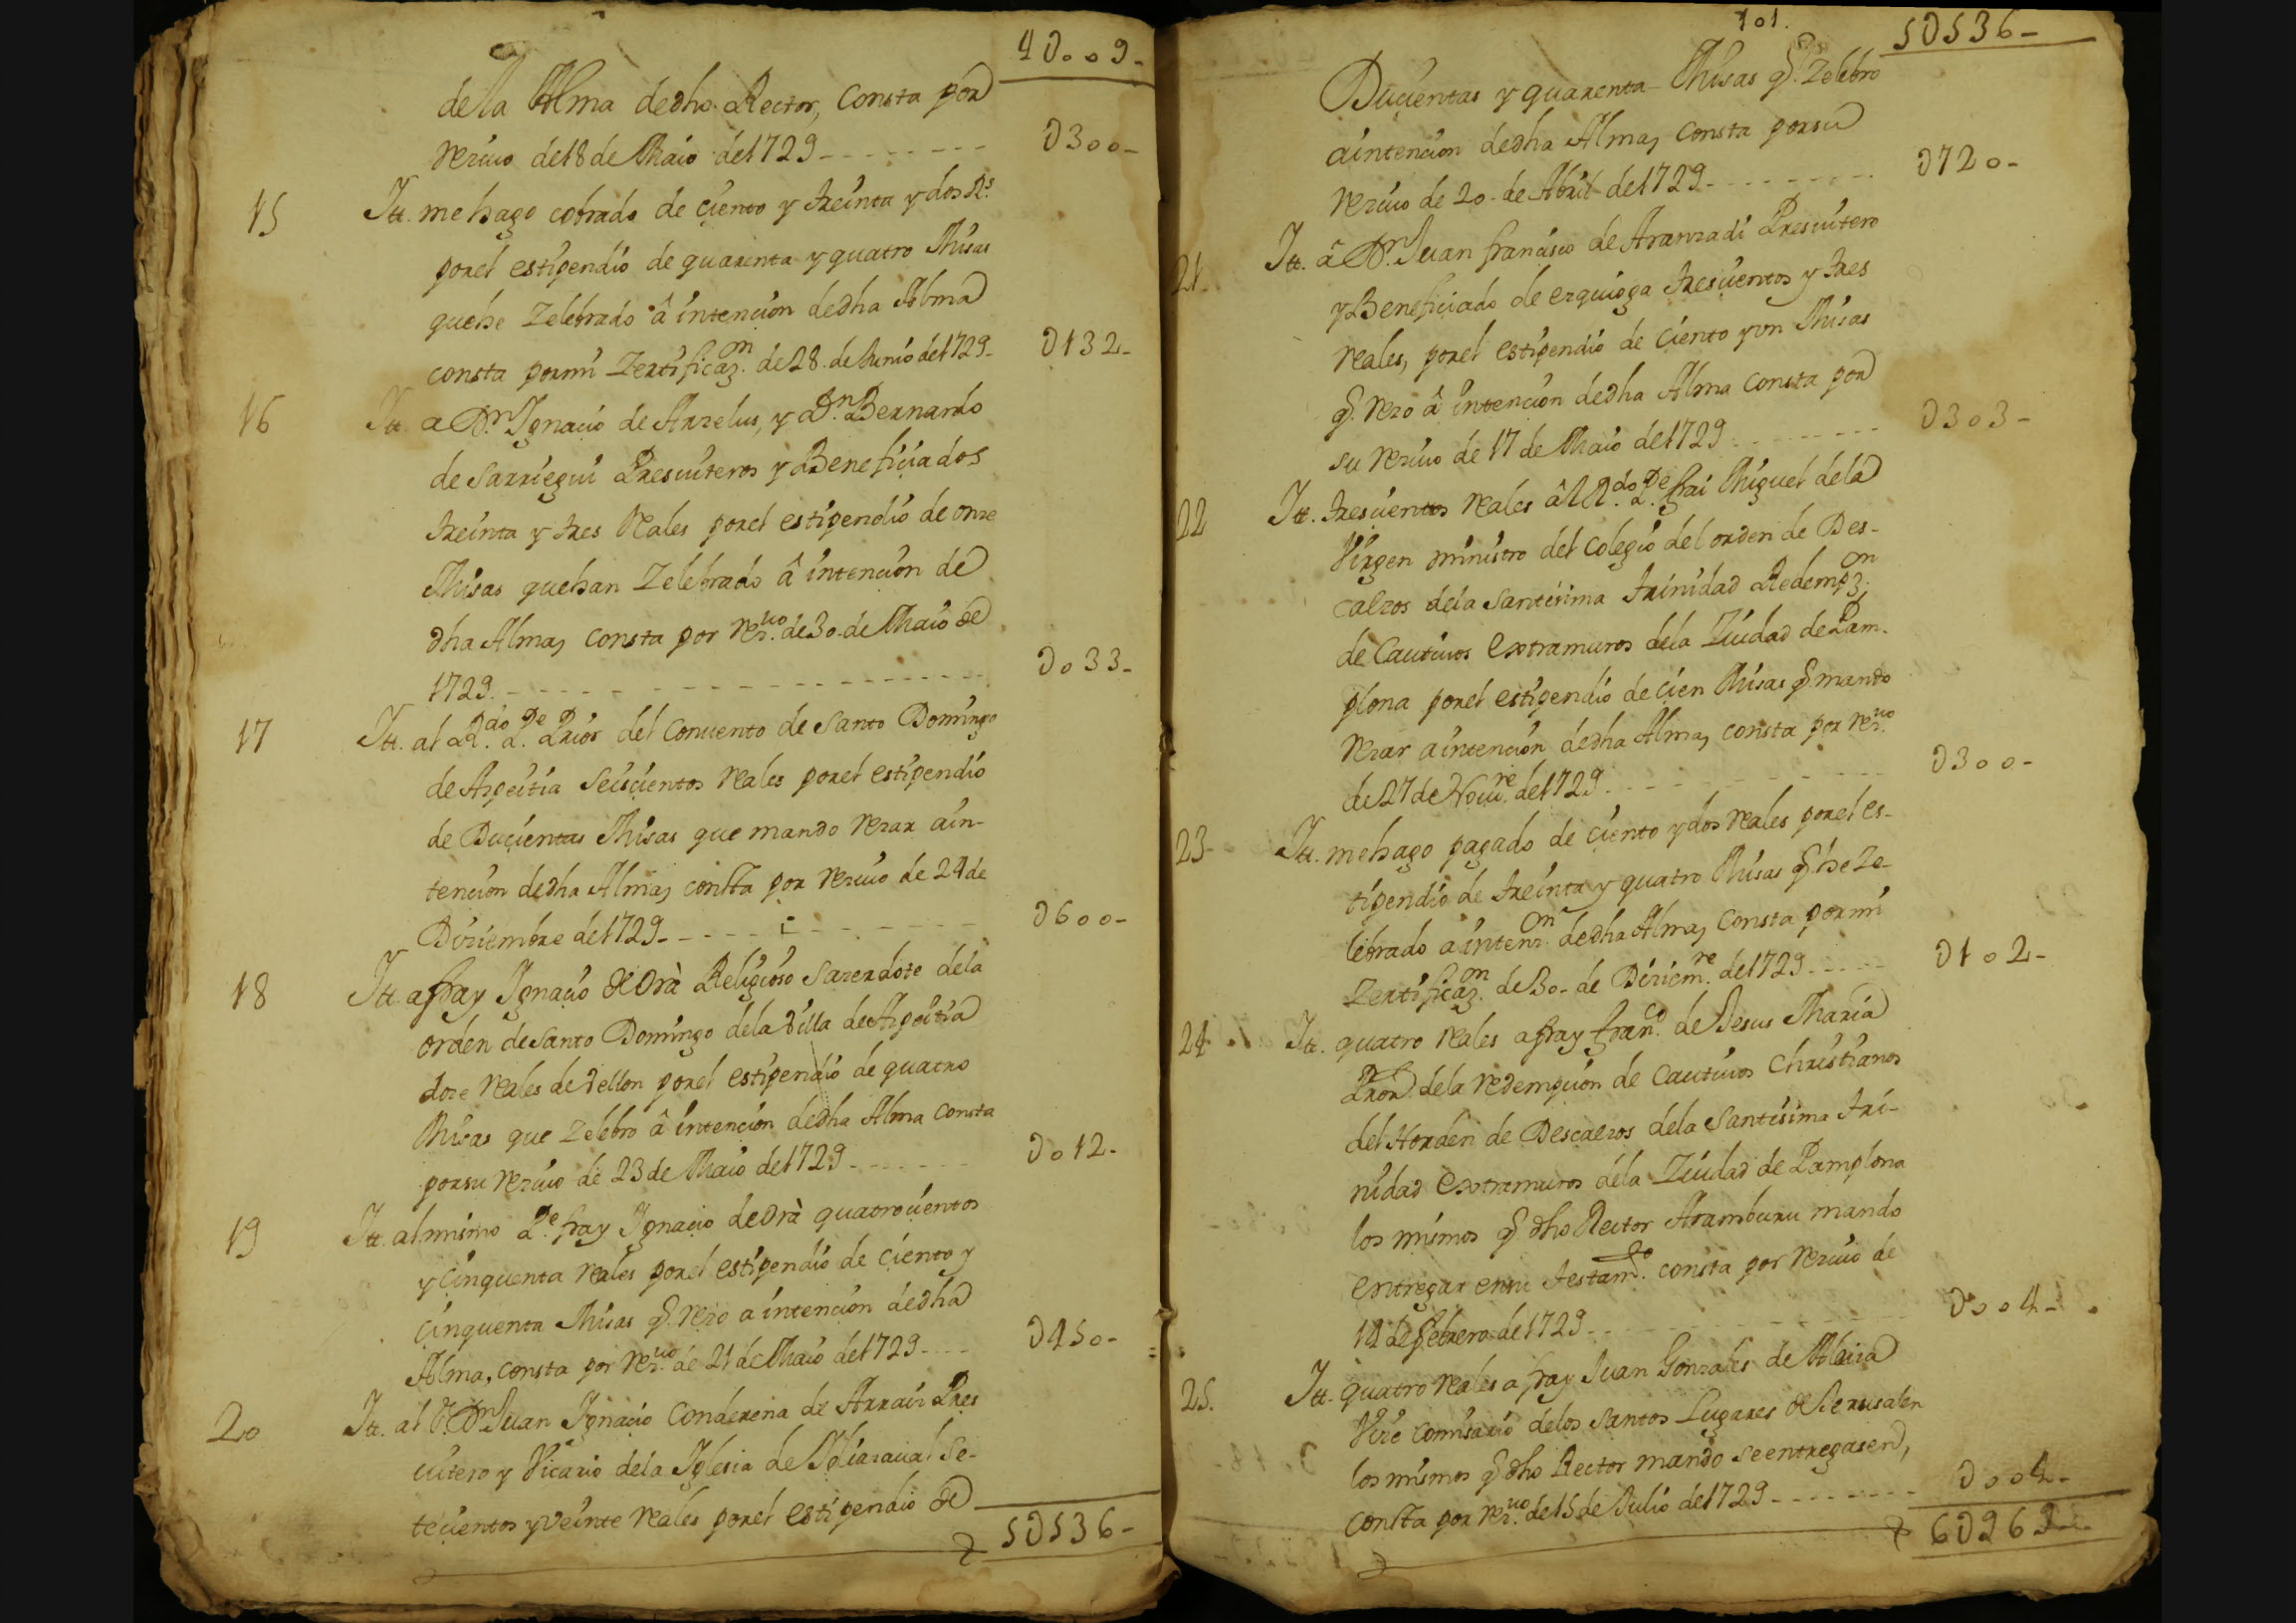 4D009-
de la Alma de dho. Rector, Consta por
reziuo de 18 de Maio de 1729- D300-
15 Itt. me hago cobrado de ciento y treinta y dos Rs.
por el estipendio de quarenta y quatro Misas
que he Zelebrado â intencion de dha Alma
consta por mi Zertificazon. de 28. de Junio de 1729- D132-
16 Itt. a Dn. Ignacio de Arzelus, y a Dn. Bernardo
de Sarriegui Presuiteros y Beneficiados
treinta y tres Reales por el estipendio de onze
Misas que han Zelebrado â intencion de
dha Alma, consta por rezuo. de 30. de Maio de
1729. D033-
17 Itt. al Rdo. Pe. Prior del Conuento de Santo Domingo
de Azpeitia Seiscientos reales por el estipendio
de Ducientas Misas que mando rezar a in-
tencion de dha Alma, consta por reziuo de 24 de
Diziembre de 1729- D600-
18 Itt. a fray Ignacio de Orà Religioso Sazerdote de la
orden de Santo Domingo de la Villa de Azpeitia
doze reales de vellon por el estipendio de quatro
Misas que Zelebro â intencion de dha Alma consta
por su reziuo de 23 de Maio de 1729- D012-
19 Itt. al mismo Pe. fray Ignacio de Orà quatrocientos
y cinquenta reales por el estipendio de ciento y
cinquenta Misas q. rezo a intencion de dha
Alma, consta por rezuo. de 21 de Maio de 1729- D450-
20 Itt. al Dn. Juan Ignacio Conderena de Arraiz Pres
uitero y Vicario de la Iglesia de Oliazaual Se-
tecientos y veinte reales por el estipendio de
5D536-
101.
5D536-
Ducientas y quarenta Misas q. Zelebro
a intencion de dha Alma, consta por su
reziuo de 20. de Abril de 1729- D720-
21 Itt. â Dn. Juan francisco de Aranzadi Presuitero
y Beneficiado de ezquioga trescientos y tres
reales, por el estipendio de ciento y vn Misas
q. rezo â intencion de dha Alma consta por
su reziuo de 17 de Maio de 1729 D303-
22 Itt. trescientos reales âl Rdo. Pe. frai Miguel de la
Virgen ministro del Colegio del orden de Des-
calzos de la Santisima trinidad Redempzon.
de Cautiuos extramuros de la Ziudad de Pam-
plona por el estipendio de cien Misas q. mando
rezar a intencion de dha Alma, consta por rezuo.
de 27 de Nouire. de 1729. D300-
23 Itt. me hago pagado de ciento y dos reales por el es-
tipendio de treinta y quatro Misas q. he Ze-
lebrado a intenzon. de dha Alma, consta por mi
Zertificazon. de 30- de Diziemre. de 1729- D102-
24 Itt. quatro reales a fray franco. de Jesus Maria
Pror. de la redempcion de Cautiuos Christianos
del Horden de Descalzos de la Santisima tri-
nidad extramuros de la Ziudad de Pamplona
los mismos q. dho Rector Aramburu mando
entregar en su testamto. consta por reziuo de
14 de febrero de 1729- D004-
25. Itt. quatro reales a fray Juan Gonzales de
Vize comisario de los Santos Lugares de Jerusalen
los mismos q. dho Rector mando se entregasen,
consta por rezuo. de 15 de Julio de 1729- D004-
6D969-